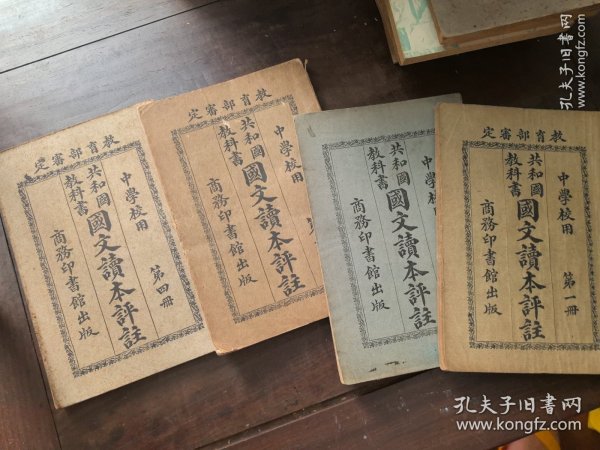 教育部審定
中學校用
第四冊
共和國
教科書
國文讀本評註
商務印書館出版
教育部審定
中學校用
共和國
教科書
國文讀本評註
商務印書館出版
中學校用
共和國
教科書
國文讀本評註
商務印書館出版
教育部審定
中學校用
第一冊
共和國
教科書
國文讀本評註
商務印書館出版
孔夫子旧书网
www.kongfz.com
孔夫子旧书网
www.kongfz.com